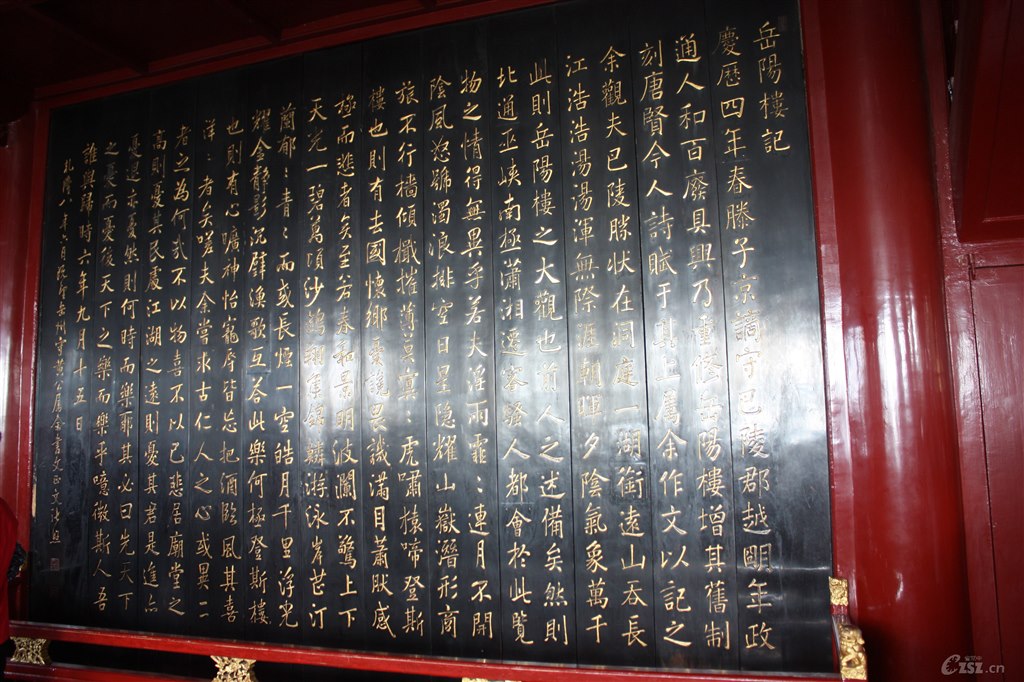 岳陽樓記
慶歷四年春滕子京謫守巴陵郡越明年政
通人和百廢具興乃重修岳陽樓增其舊制
刻唐賢今人詩賦于其上屬余作文以記之
余觀夫巴陵勝狀在洞庭一湖銜遠山吞長
江浩浩湯湯渾無際涯朝暉夕陰氣象萬千
此則岳陽樓之大觀也前人之述備矣然則
北通巫峽南極瀟湘遷客騷人都會於此覽
物之情得無異乎若夫淫雨霏:連月不開
陰風怒號濁浪排空日星隱耀山嶽潛形商
旅不行檣傾檝摧薄暮冥:虎嘯猿啼登斯
樓也則有去國懷鄉憂讒畏譏滿目蕭肰感
極而悲者矣至若春和景明波瀾不驚上下
天光一碧萬頃沙鷗翔集錦鱗游泳岸芷汀
蘭郁:青:而或長煙一空皓月千里浮光
耀金靜影沉璧漁歌互答此樂何極登斯樓
也則有心曠神怡寵辱皆忘把酒臨風其喜
洋:者矣嗟夫余嘗求古仁人之心或異二
者之為何哉不以物喜不以己悲居廟堂之
高則憂其民處江湖之遠則憂其君是進亦
憂退亦憂然則何時而樂耶其必曰先天下
之憂而憂後天下之樂而樂乎噫微斯人吾
誰與歸時六年九月十五日
乾隆八年六月
CZSZ.cn